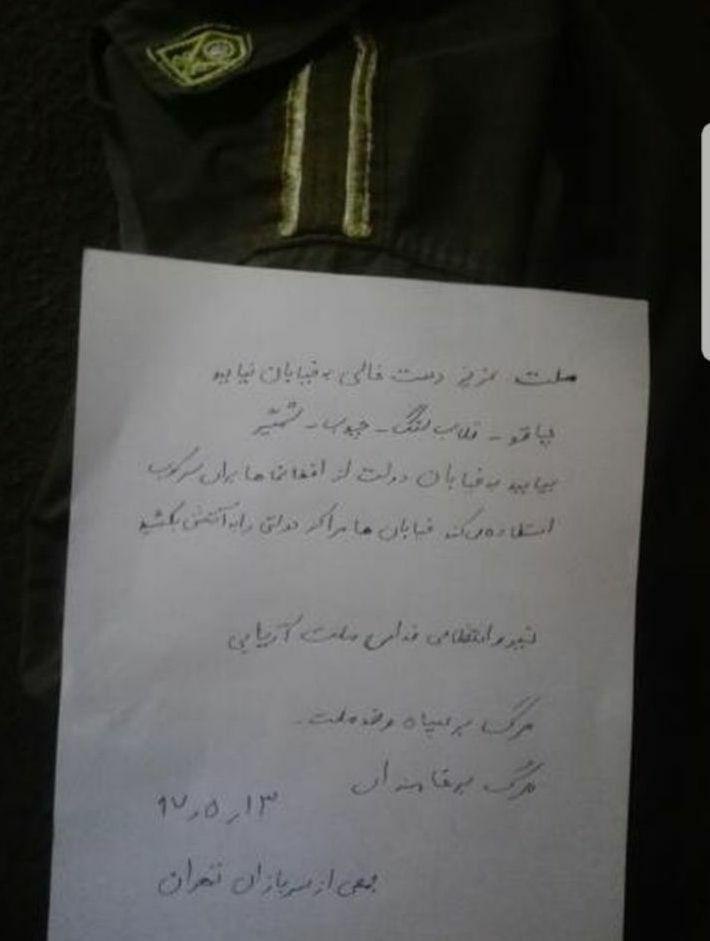 ملت عزیز دست خالی به خیابان نیایید
چاقو - قلاب سنگ - چوب - شمشیر
بیایید به خیابان دولت از افغانها برای سرکوب
استفاده می‌کند خیابان ها مراکز دولتی را به آتش بکشید
نیرو انتظامی فدای ملت آریایی
مرگ بر سپاه و ضد ملت.
مرگ بر خامنه ای
۱۳ ر ۵ ر ۹۷
جمعی از سربازان تهران